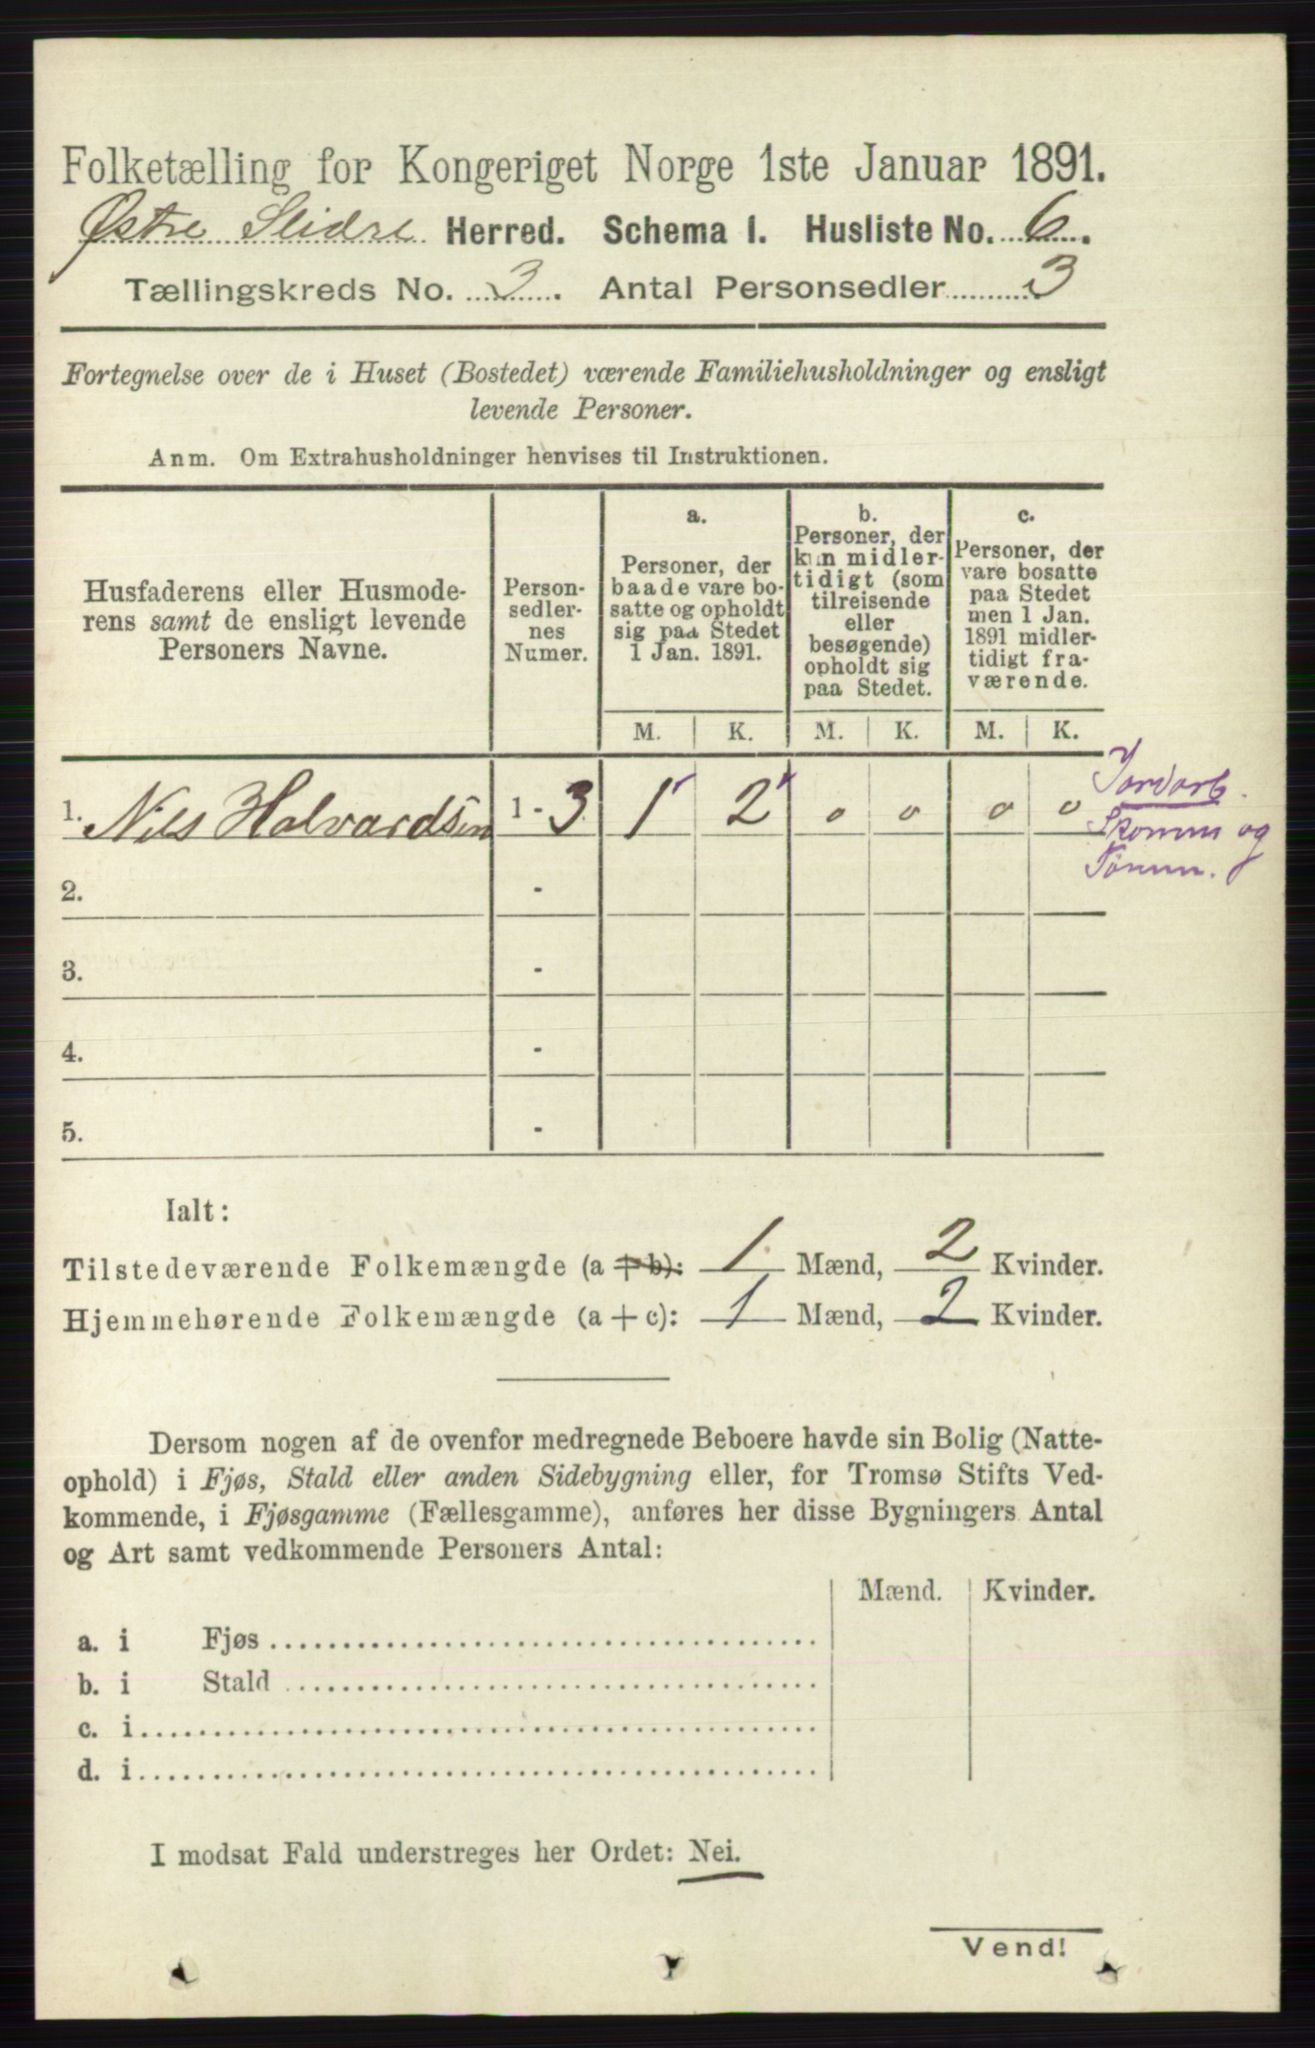 Folketælling for Kongeriget Norge 1ste Januar 1891.
Østre Slidre Herred. Schema I. Husliste No. 6.
Tællingskreds No. 3. Antal Personsedler 3
Fortegnelse over de i Huset (Bostedet) værende Familiehusholdninger og ensligt
levende Personer.
Anm. Om Extrahusholdninger henvises til Instruktionen.
Husfaderens eller Husmode-
rens samt de ensligt levende
Personers Navne.
Person-
sedler-
nes
Numer.
a.
Personer, der
baade vare bo-
satte og opholdt
sig paa Stedet
1 Jan. 1891.
b.
Personer, der
kun midler-
tidigt (som
tilreisende
eller
besøgende)
opholdt sig
paa Stedet.
c.
Personer, der
vare bosatte
paa Stedet
men 1 Jan.
1891 midler-
tidigt fra-
værende.
M. K. M. K. M. K.
1. Nils Halvardsen 1 - 3 1 2 0 0 0 0
Jordarb.
Skomm og
Tømm.
2. -
3. -
4. -
5. -
Ialt:
Tilstedeværende Folkemængde (a + b): 1 Mænd, 2 Kvinder.
Hjemmehørende Folkemængde (a + c): 1 Mænd, 2 Kvinder.
Dersom nogen af de ovenfor medregnede Beboere havde sin Bolig (Natte-
ophold) i Fjøs, Stald eller anden Sidebygning eller, for Tromsø Stifts Ved-
kommende, i Fjøsgamme (Fællesgamme), anføres her disse Bygningers Antal
og Art samt vedkommende Personers Antal:
Mænd. Kvinder.
a. i Fjøs
b. i Stald
c. i
d. i
I modsat Fald understreges her Ordet: Nei.
Vend!